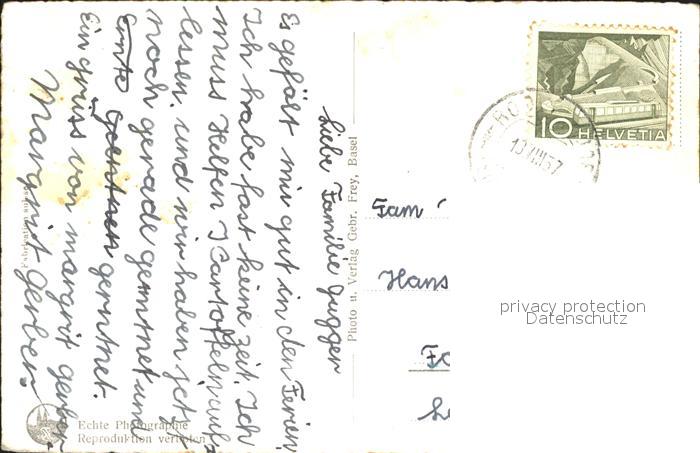 Liebe Familie Gugger
Es gefält mir gut in den Ferien
Ich habe fast keine Zeit. Ich
muss Helfen Kartoffeln auf
lessen. und wir haben jetz
noch gerade geerntnet und
Ernte geerntnet.
Ein gruss von margrit gerber
Margrit Gerber.
Photo u. Verlag Gebr. Frey, Basel
Fabrication suisse
Echte Photographie
Reproduktion verboten
10 HELVETIA
Fam
Hans
privacy protection
Datenschutz